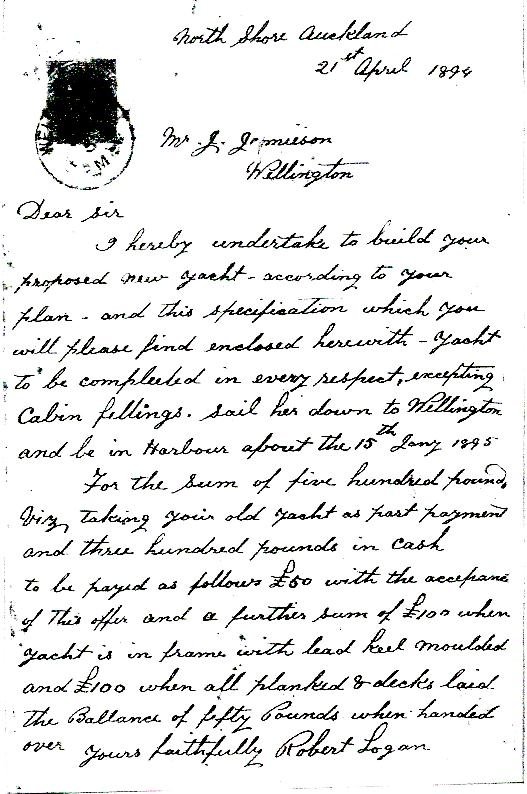 North Shore Auckland
21st April 1894
Mr J. Jamieson
Wellington
Dear Sir
I hereby undertake to build your
proposed new yacht - according to your
plan - and this specification which you
will please find enclosed herewith - Yacht
to be compleeted in every respect, excepting
Cabin fellings. sail her down to Wellington
and be in Harbour about the 15th Jany 1895
For the sum of five hundred pounds,
Viz, taking your old yacht as part payment
and three hundred pounds in cash
to be payed as follows £50 with the accepance
of this offer and a further sum of £100 when
yacht is in frame with lead keel moulded
and £100 when all planked & decks laid.
the Ballance of fifty Pounds when handed
over yours faithfully Robert Logan